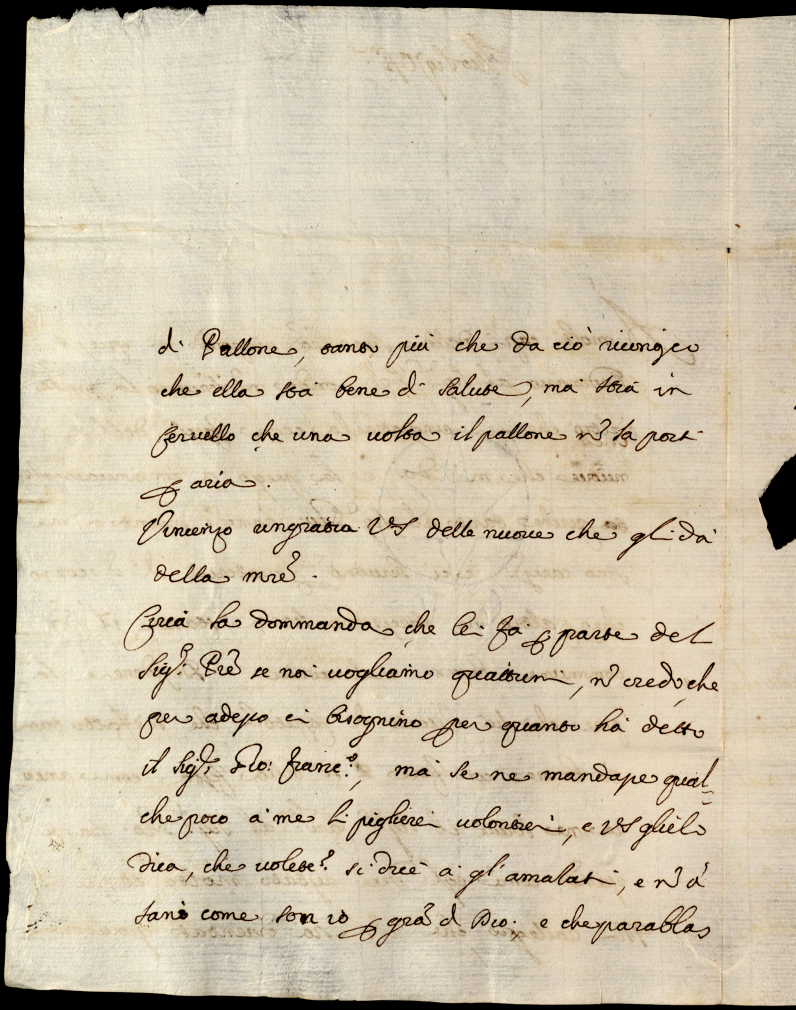 di Pallone, tanto più che da ciò ricongco
che ella stà bene di salute, mà stia in
Cervello che una volta il pallone nõ la porti
p aria.
Vincenzo ringratia VS delle nuove che gli dà
della mrẽ.
Circa la dommanda, che lei fà p parte del
Sigr: Prẽ se noi vogliamo quattrini, nõ credo, che
per adesso ci bisognino per quanto hà detto
il Sigr, Gio: Franc:º, mà se ne mandasse qual=
che poco à me li piglierei volontieri, e VS glielo
dica, che volete? si dice à gl'amalati, e nõ à
sani come son io p grã di Dio: e che parablas